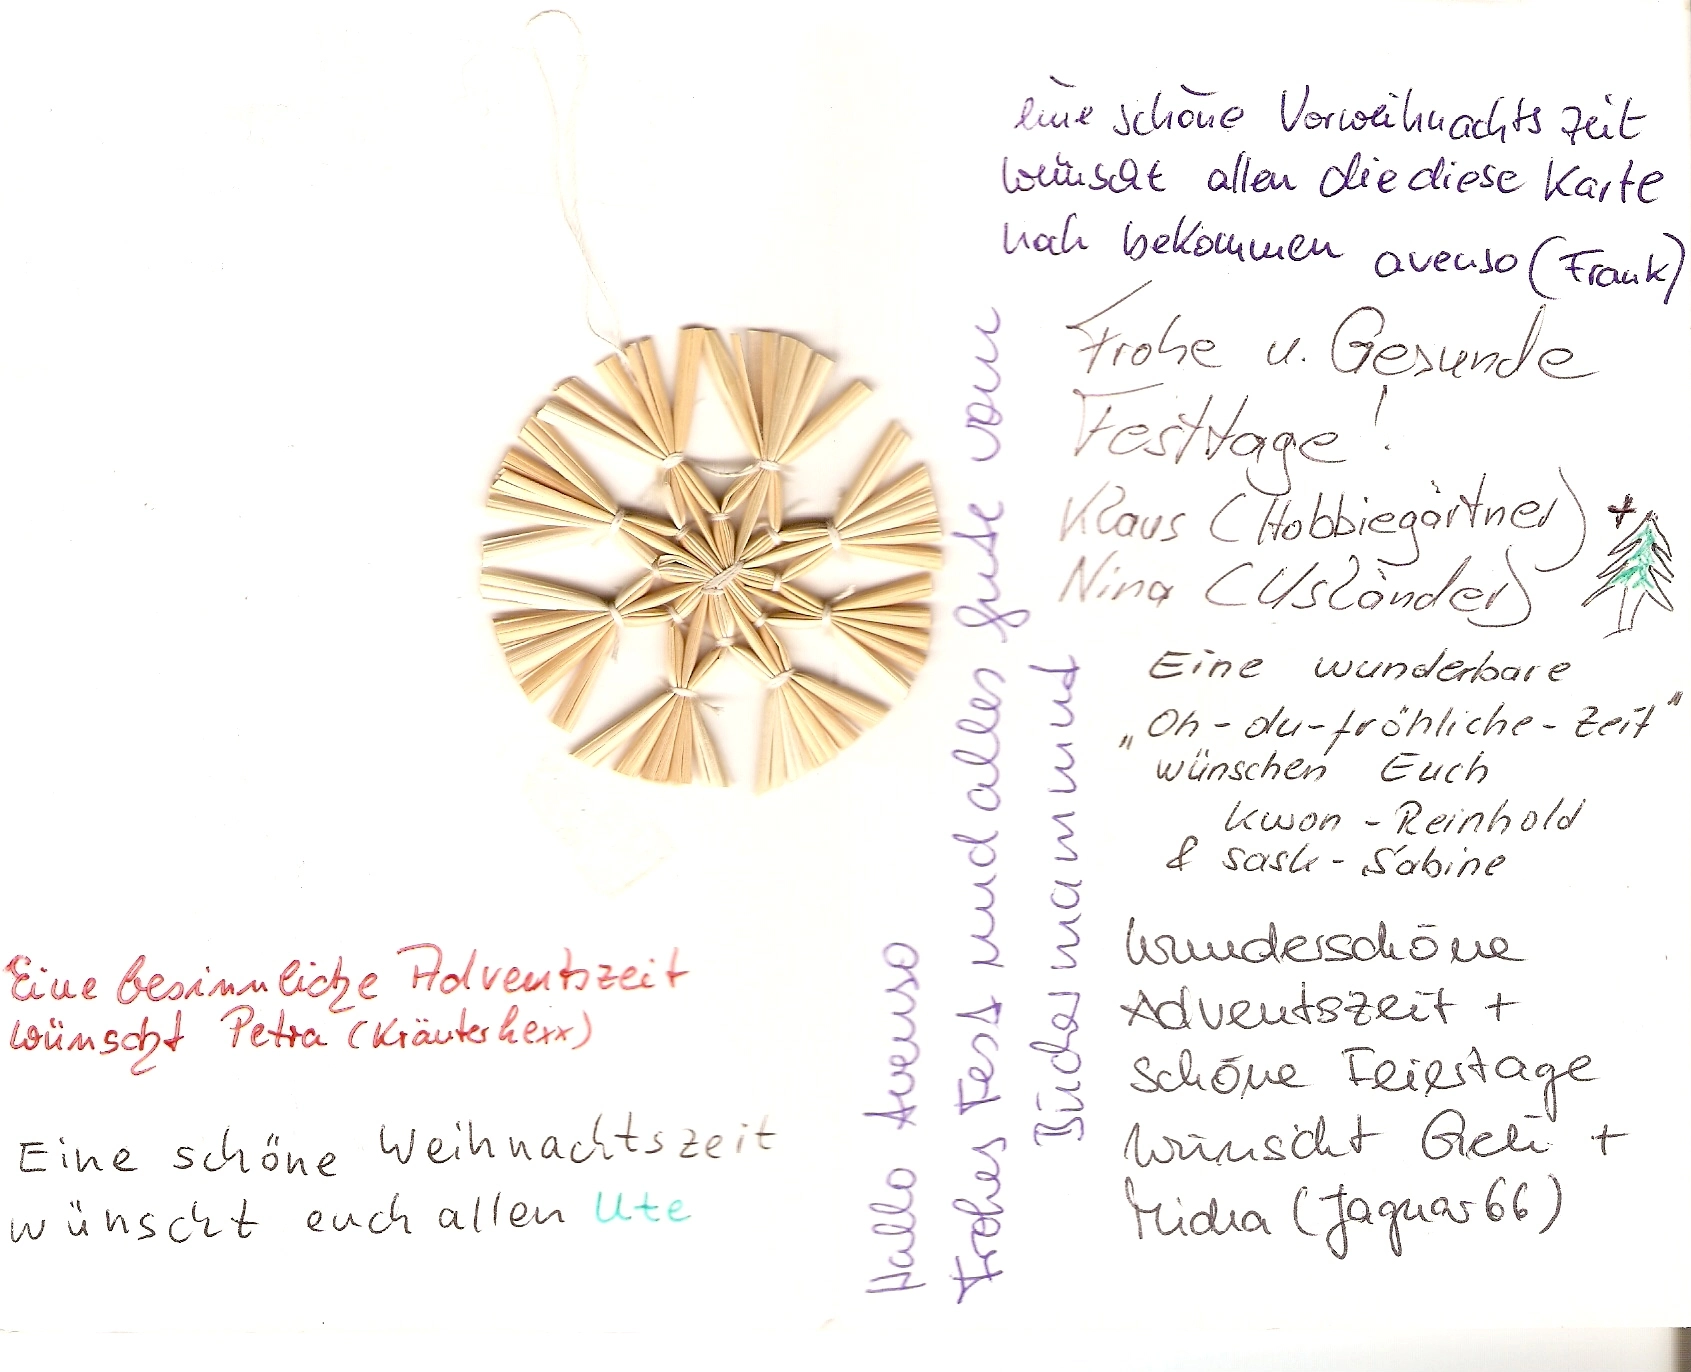 eine schöne Vorweihnachtszeit
wünscht allen die diese Karte
noch bekommen avenso (Frank)
Frohe u. Gesunde
Festtage!
Klaus (Hobbiegärtner) +
Nina (Usländer)
Eine wunderbare
„Oh-du-fröhliche-Zeit"
wünschen Euch
Kwon - Reinhold
& Sask - Sabine
Wunderschöne
Adventszeit +
schöne Feiertage
wünscht Geli +
Micha (Jaguar66)
Hallo Avenso
Frohes Fest und alles Gute vom
Büchermammut
Eine besinnliche Adventszeit
wünscht Petra (Kräuterhexx)
Eine schöne Weihnachtszeit
wünscht euch allen Ute